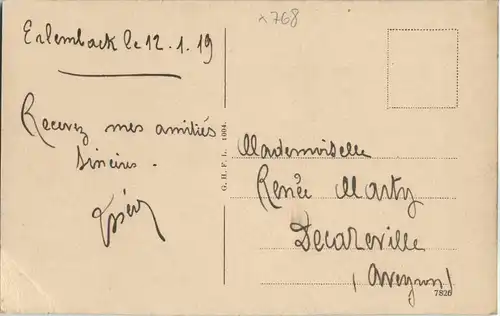 x768
Erlembach le 12.1.19
Recevez mes amitiés
sincères.
G. H. F. L. 1004.
Mademoiselle
Renée Marty
Decazeville
(Aveyron)
7826